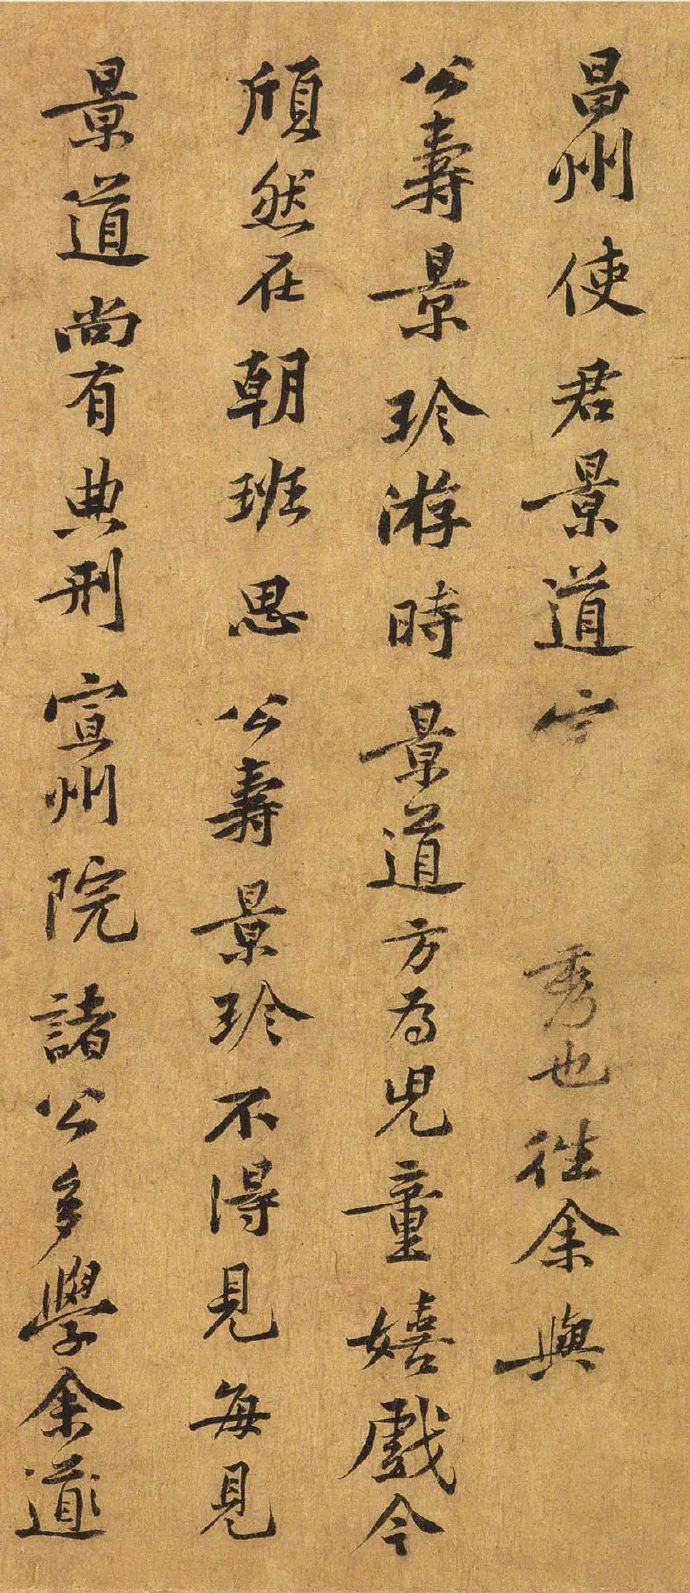 昌州使君景道宗秀也往余與
公壽景珍游時景道方為兒童嬉戲今
頎然在朝班思公壽景珍不得見每見
景道尚有典刑宣州院諸公多學余道